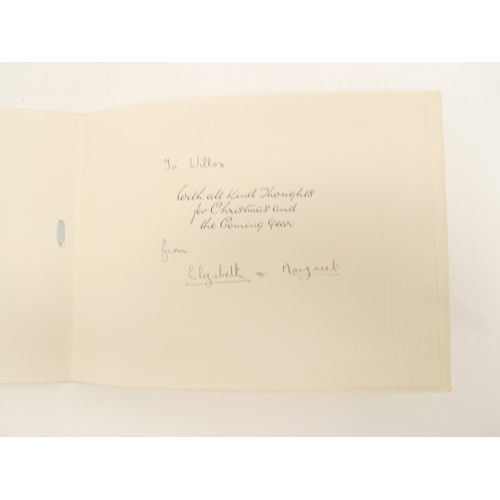 To Wilkox
With all Kind Thoughts
for Christmas and
the Coming Year
from
Elizabeth & Margaret